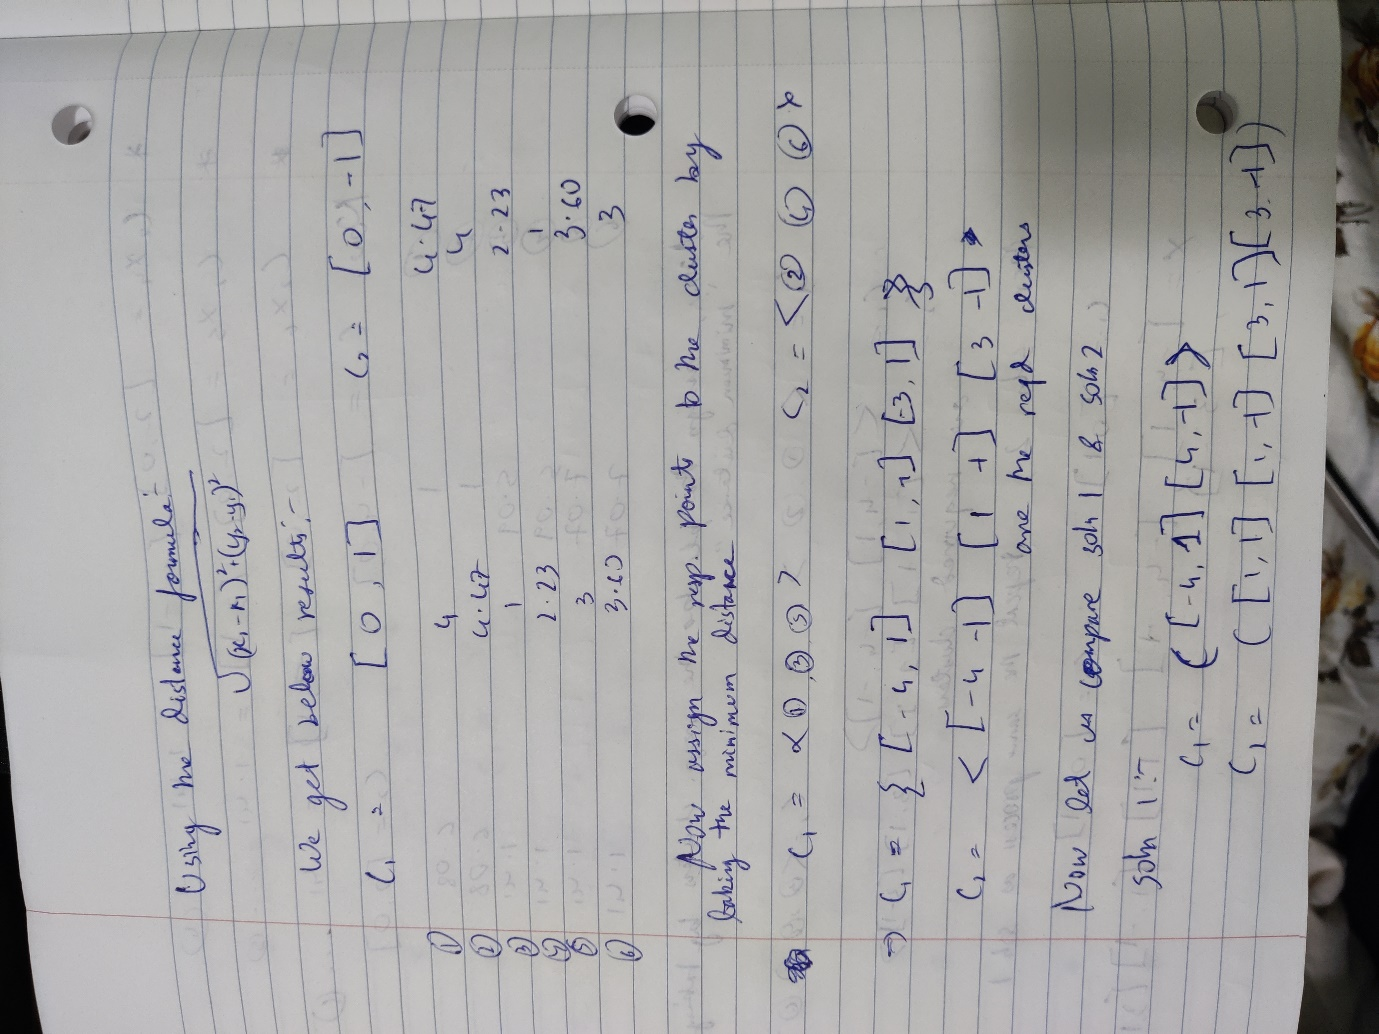 Using the distance formula:-
√(x₁-x₁)²+(y₂-y₁)²
We get below results:-
C₁ = [0, 1] C₂ = [0, -1]
① 4 4.47
② 4.47 4
③ 1 2.23
④ 2.23 1
⑤ 3 3.60
⑥ 3.60 3
Now assign the resp. points to the cluster by
taking the minimum distance
C₁ = <① ③ ⑤> C₂ = <② ④ ⑥>
⇒ C₁ = { [-4, 1] [1, 1] [3, 1] }
C₂ = < [-4 -1] [1 -1] [3 -1] >
are the reqd clusters
Now let us compare soln 1 & soln 2
soln 1:-
C₁ = ( [-4, 1] [4, -1] >
C₂ = ( [1, 1] [1, -1] [3, 1] [3 -1] )